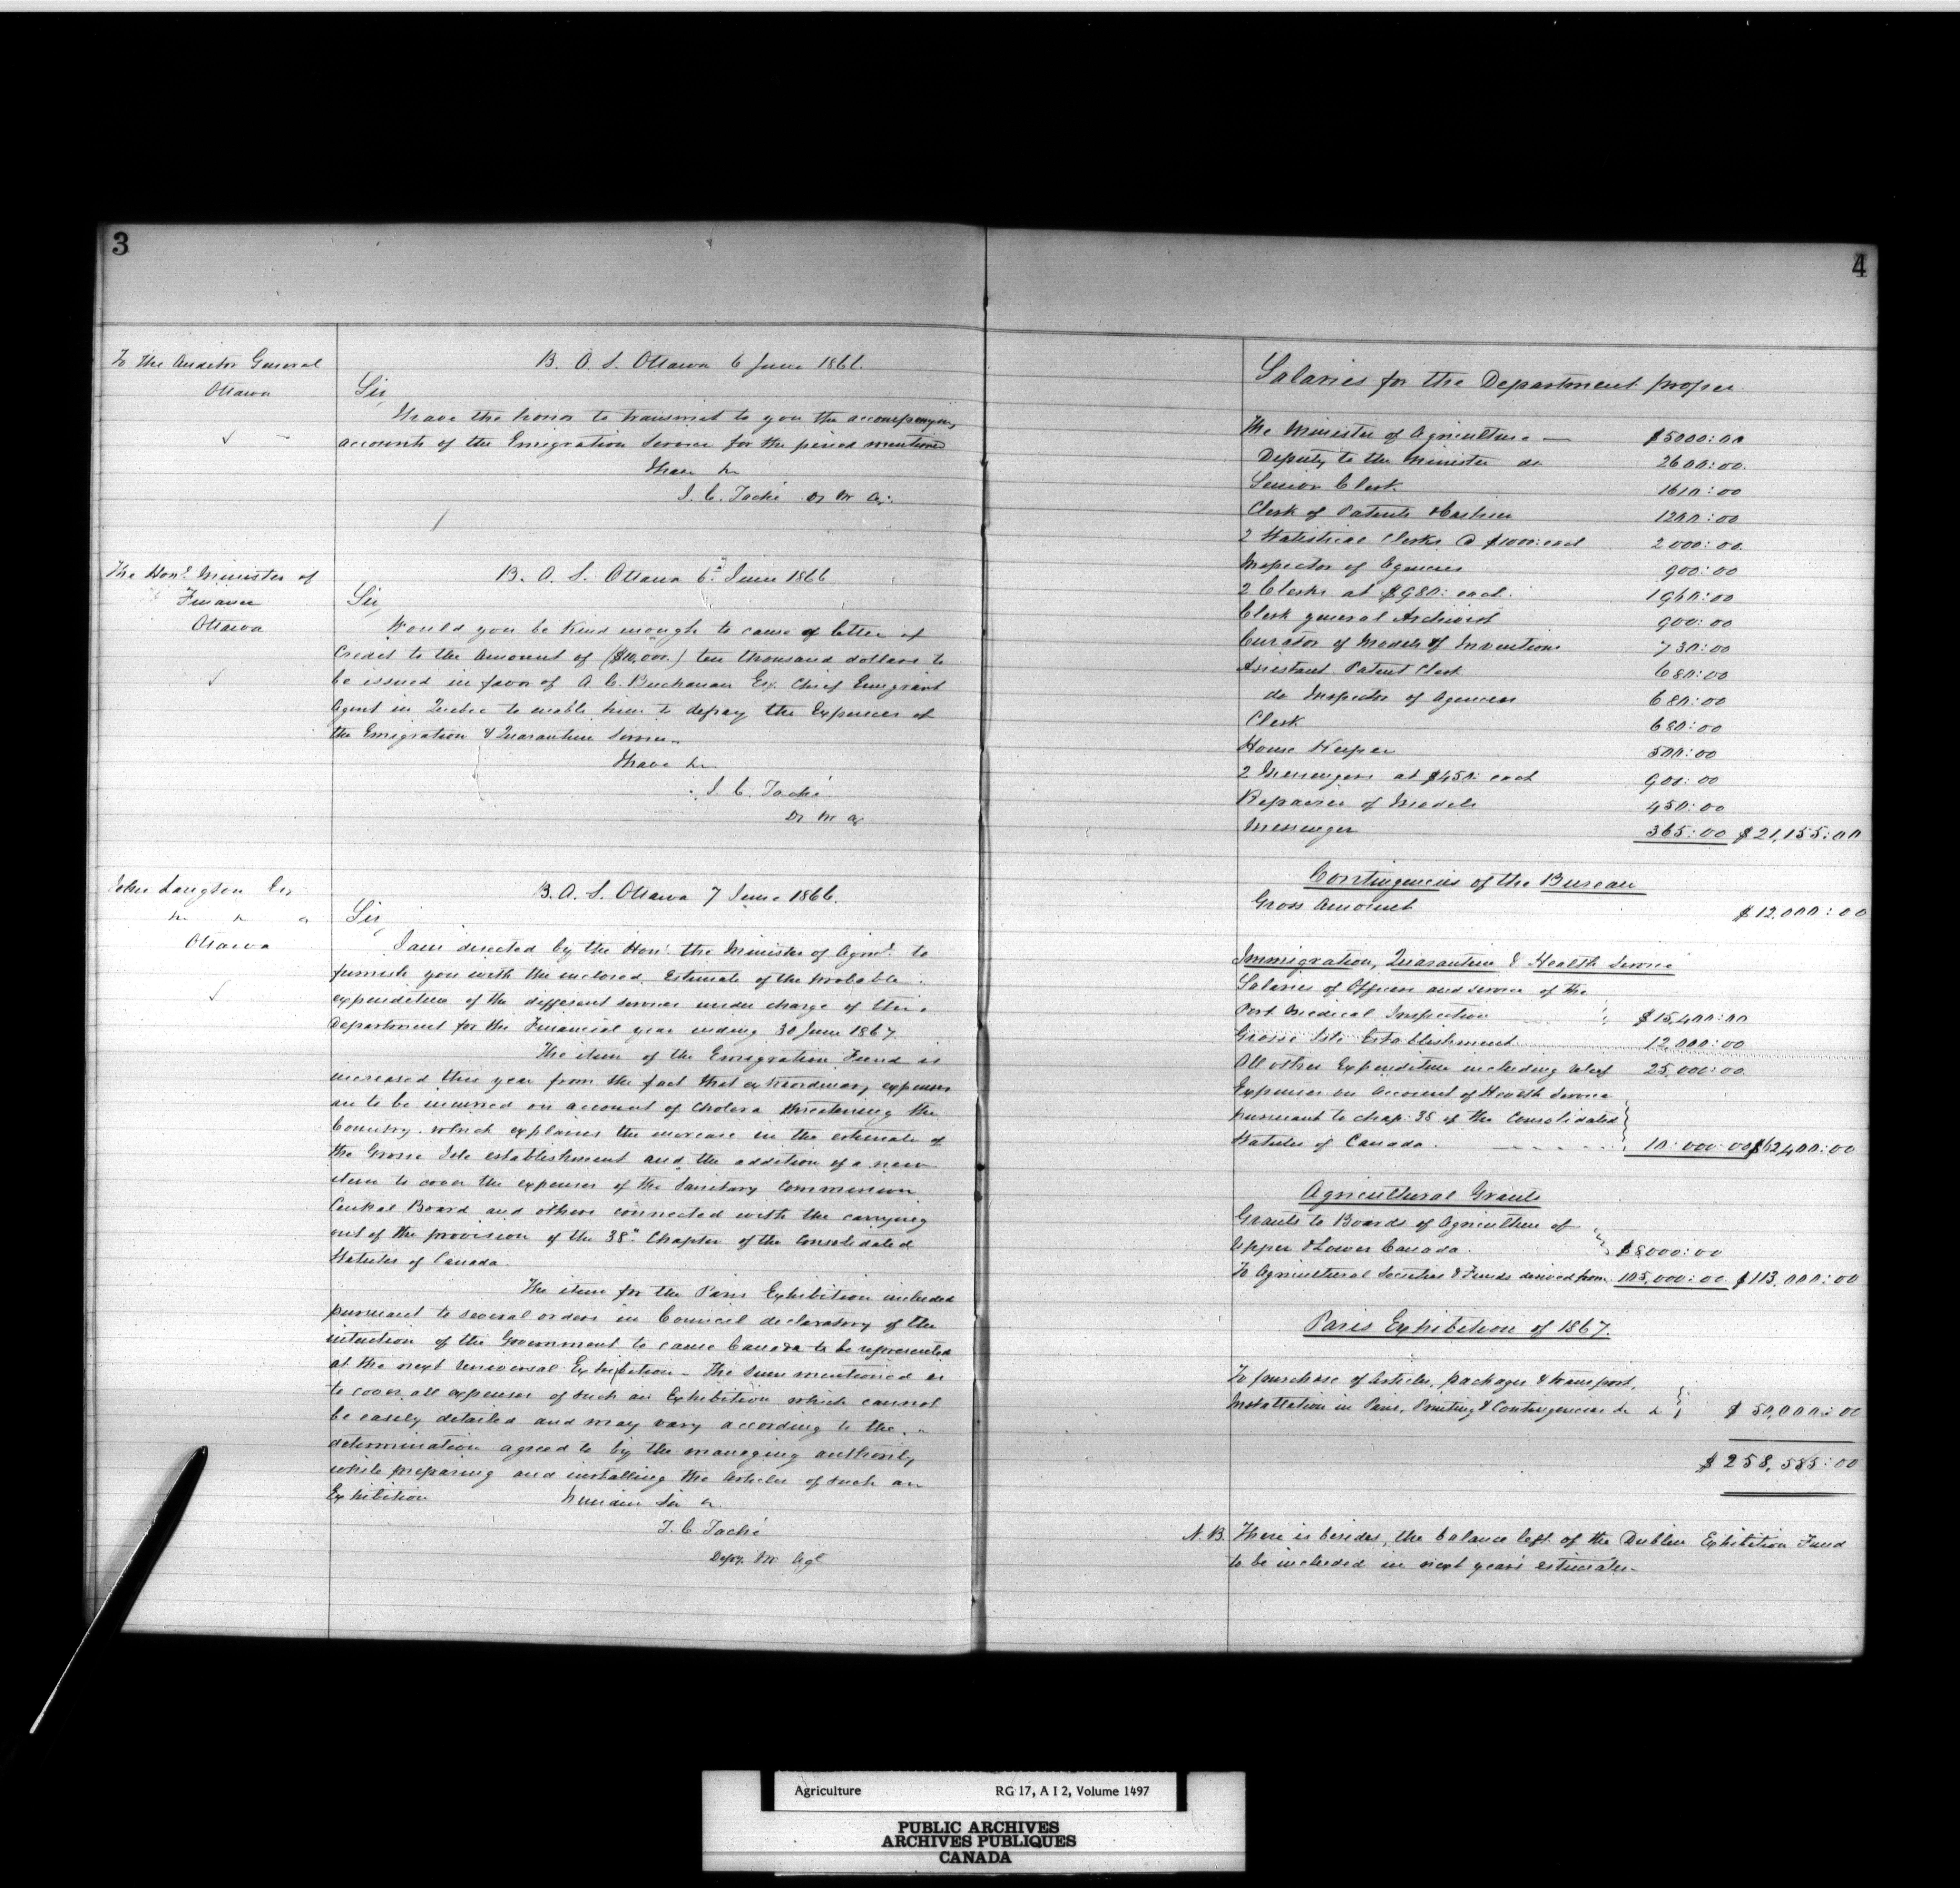 3
To the Auditor General
Ottawa
B. A. S. Ottawa 6 June 1866.
Sir
I have the honor to transmit to you the accompanying
accounts of the Emigration Service for the period mentioned
I have &c
J. C. Taché D. M. A.
The Hon. Minister of
Finance
Ottawa
B. A. S. Ottawa 6th June 1866
Sir
Would you be kind enough to cause a letter of
Credit to the Amount of ($10,000.) ten thousand dollars to
be issued in favor of A. C. Buchanan Esq. Chief Emigrant
Agent in Quebec to enable him to defray the Expenses of
the Emigration & Quarantine Service
I have &c
J. C. Taché
D. M. A
John Langton Esq
&c &c &c
Ottawa
B. A. S. Ottawa 7 June 1866.
Sir
I am directed by the Hon. the Minister of Agre. to
furnish you with the inclosed Estimate of the probable
expenditure of the different service under charge of this
Department for the Financial year ending 30 June 1867
The item of the Emigration Fund is
increased this year from the fact that extraordinary expenses
are to be incurred on account of Cholera threatening the
Country. which explains the increase in the estimate of
the Grosse Isle establishment and the addition of a new
item to cover the expenses of the Sanitary Commission
Central Board and others connected with the carrying
out of the provision of the 38th Chapter of the Consolidated
Statutes of Canada.
The item for the Paris Exhibition included
pursuant to several orders in Council declaratory of the
intention of the Government to cause Canada to be represented
at the next Universal Exhibition - The Sum mentioned is
to cover all expenses of such an Exhibition which cannot
be easily detailed and may vary according to the
determination agreed to by the managing authority
while preparing and installing the Articles of such an
Exhibition I remain Sir &c
J. C. Taché
Depy. M. Agl
4
Salaries for the Department proper
The Minister of Agriculture — $5000:00
Deputy to the Minister do 2600:00
Senior Clerk 1610:00
Clerk of Patents & Cashier 1200:00
2 Statistical Clerks @ $1000: each 2000:00
Inspector of Agencies 900:00
2 Clerks at $980: each. 1960:00
Clerk general Archivist 900:00
Curator of Models of Inventions 730:00
Assistant Patent Clerk 680:00
do Inspector of Agencies 680:00
Clerk 680:00
House Keeper 500:00
2 Messengers at $450: each 900:00
Repairer of Models 450:00
Messenger 365:00 $21,155:00
Contingencies of the Bureau
Gross Amount $12,000:00
Immigration, Quarantine & Health Service
Salaries of Officers and service of the
Port Medical Inspection $15,400:00
Grosse Isle Establishment 12,000:00
All other Expenditure including relief 25,000:00
Expenses on Account of Health Service
pursuant to chap: 38 of the Consolidated
Statutes of Canada. 10:000:00 $62,400:00
Agricultural Grants
Grants to Boards of Agriculture of
Upper & Lower Canada. $8000:00
To Agricultural Societies & Funds derived from 105,000:00 $113,000:00
Paris Exhibition of 1867.
To purchase of Articles, packages & transport,
Installation in Paris, Printing & Contingencies &c &c $50,000:00
$258,585:00
N.B. There is besides, the balance left of the Dublin Exhibition Fund
to be included in next years estimates.
Agriculture RG 17, A I 2, Volume 1497
PUBLIC ARCHIVES
ARCHIVES PUBLIQUES
CANADA